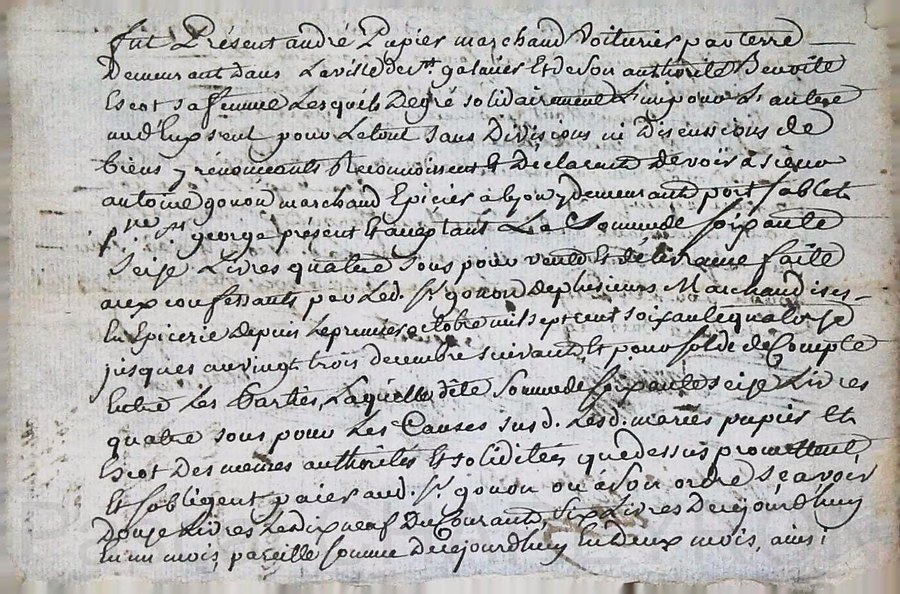 fut Présent andré Pupier marchand Voiturier par terre
Demeurant dans La ville de st galmier Et de son authorité Benoite
Escot sa femme Lesquéls De gré solidairement L'un pour L'autre
un d'Eux seul pour Le tout sans Divisions ni Discussions de
biens y rénoncants Reconnoissent Et Déclarent devoir à sieur
antoine gonon marchand Epicier à lyon y demeurant port sablet
psse st george présent Et acceptant La Somme de soixante
seize Livres quatre sous pour vente Et délivrance faite
aux confessants par Led. sr. gonon de plusieurs Marchandises
En Epicerie depuis Le premier octobre mil sept cent soixante quatorze
jusques au vingt trois decembre suivant, Et pour solde de Compte
Entre Les Parties, Laquélle dite Somme de soixante seize Livres
quatre sous pour Les Causes susd. Lesd. mariés pupier Et
Escot Des memes authorités Et solidités que dessus promettent
Et sobligent paier aud. sr. gonon ou à son ordre sçavoir
Douze Livres Le dix neuf Du Courant, six Livres Decejourdhuy
En un mois, pareille somme Decejourdhuy En Deux mois, ainsi